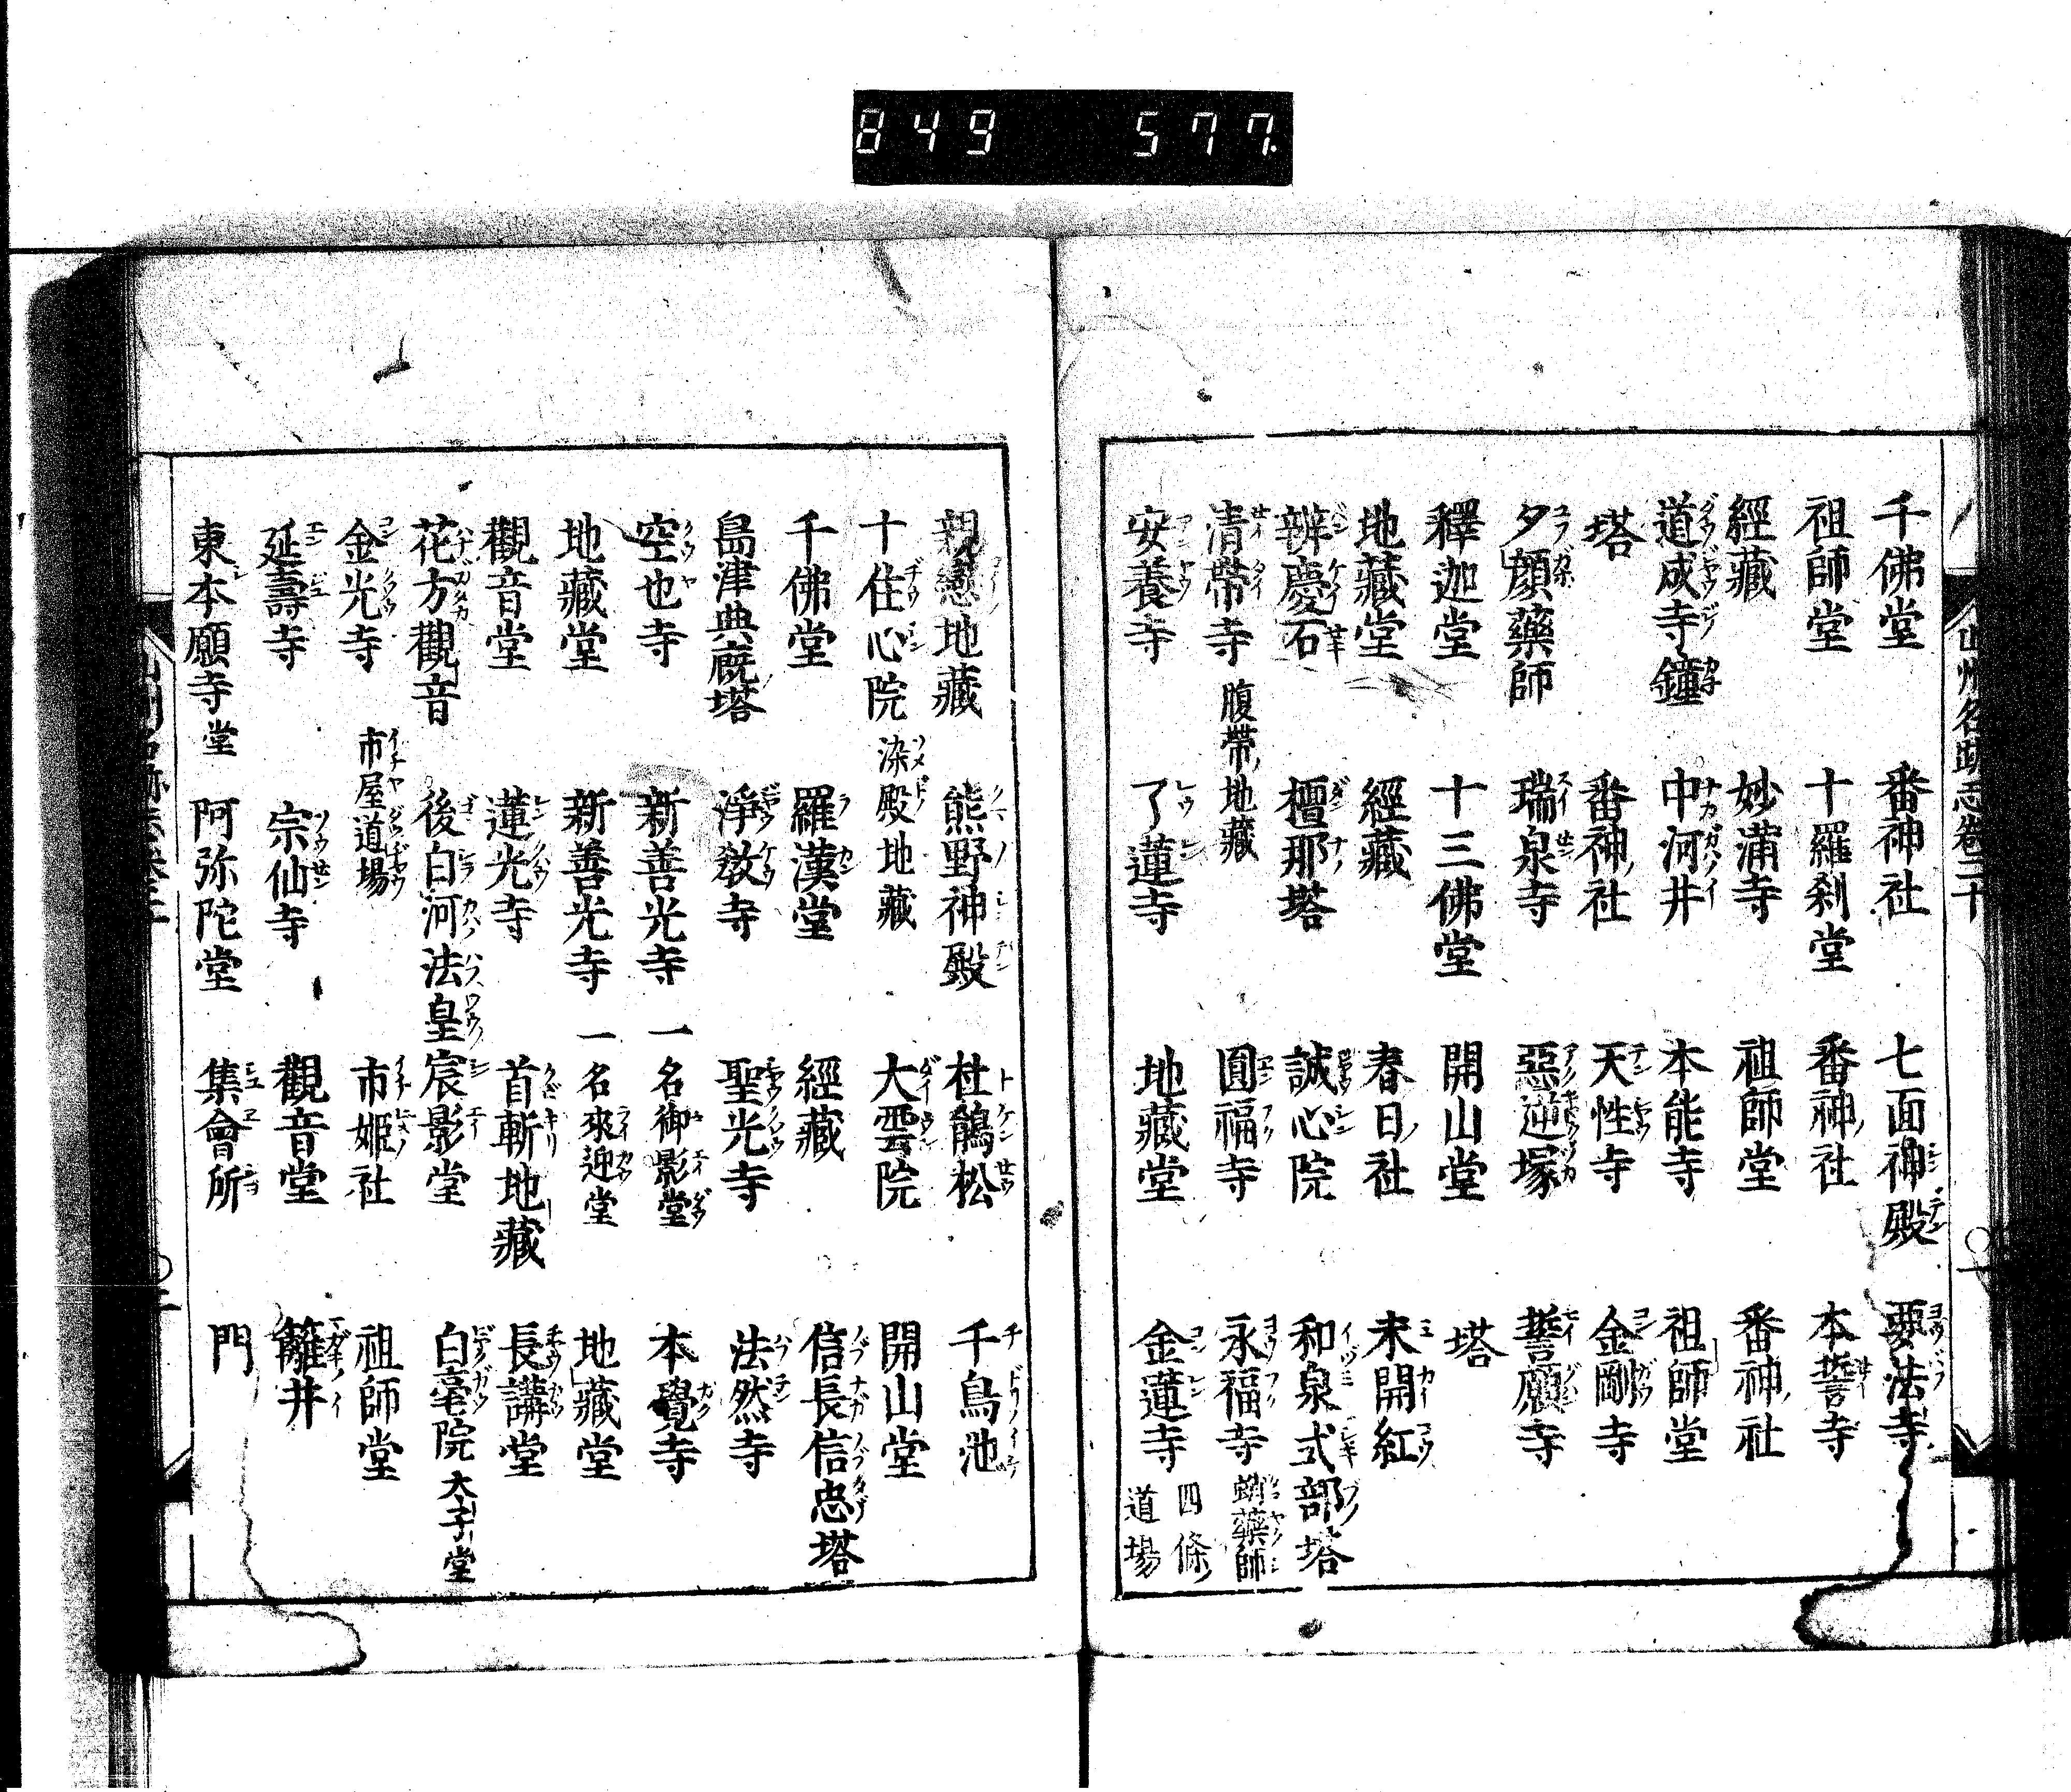 849 577.
千佛堂 番神社 七面神殿 要法寺
祖師堂 十羅刹堂 番神社 本誓寺
經藏 妙滿寺 祖師堂 番神社
道成寺鐘 中河井 本能寺 祖師堂
塔 番神社 天性寺 金剛寺
夕顏藥師 瑞泉寺 惡逆塚 誓願寺
釋迦堂 十三佛堂 開山堂 塔
地藏堂 經藏 春日社 未開紅
辨慶石 檀那塔 誠心院 和泉式部塔
清帶寺 腹帶地藏 圓福寺 永福寺 蛸藥師
安養寺 了蓮寺 地藏堂 金蓮寺 四條道場
親戀地藏 熊野神殿 杜鵑松 千鳥池
十住心院 染殿地藏 大雲院 開山堂
千佛堂 羅漢堂 經藏 信長信忠塔
島津典廐塔 淨教寺 聖光寺 法然寺
空也寺 新善光寺 一名御影堂 本覺寺
地藏堂 新善光寺 一名來迎堂 地藏堂
觀音堂 蓮光寺 首斬地藏 長講堂
花方觀音 後白河法皇宸影堂 白毫院 太子堂
金光寺 市屋道場 市姬社 祖師堂
延壽寺 宗仙寺 觀音堂 籬井
東本願寺堂 阿弥陀堂 集會所 門